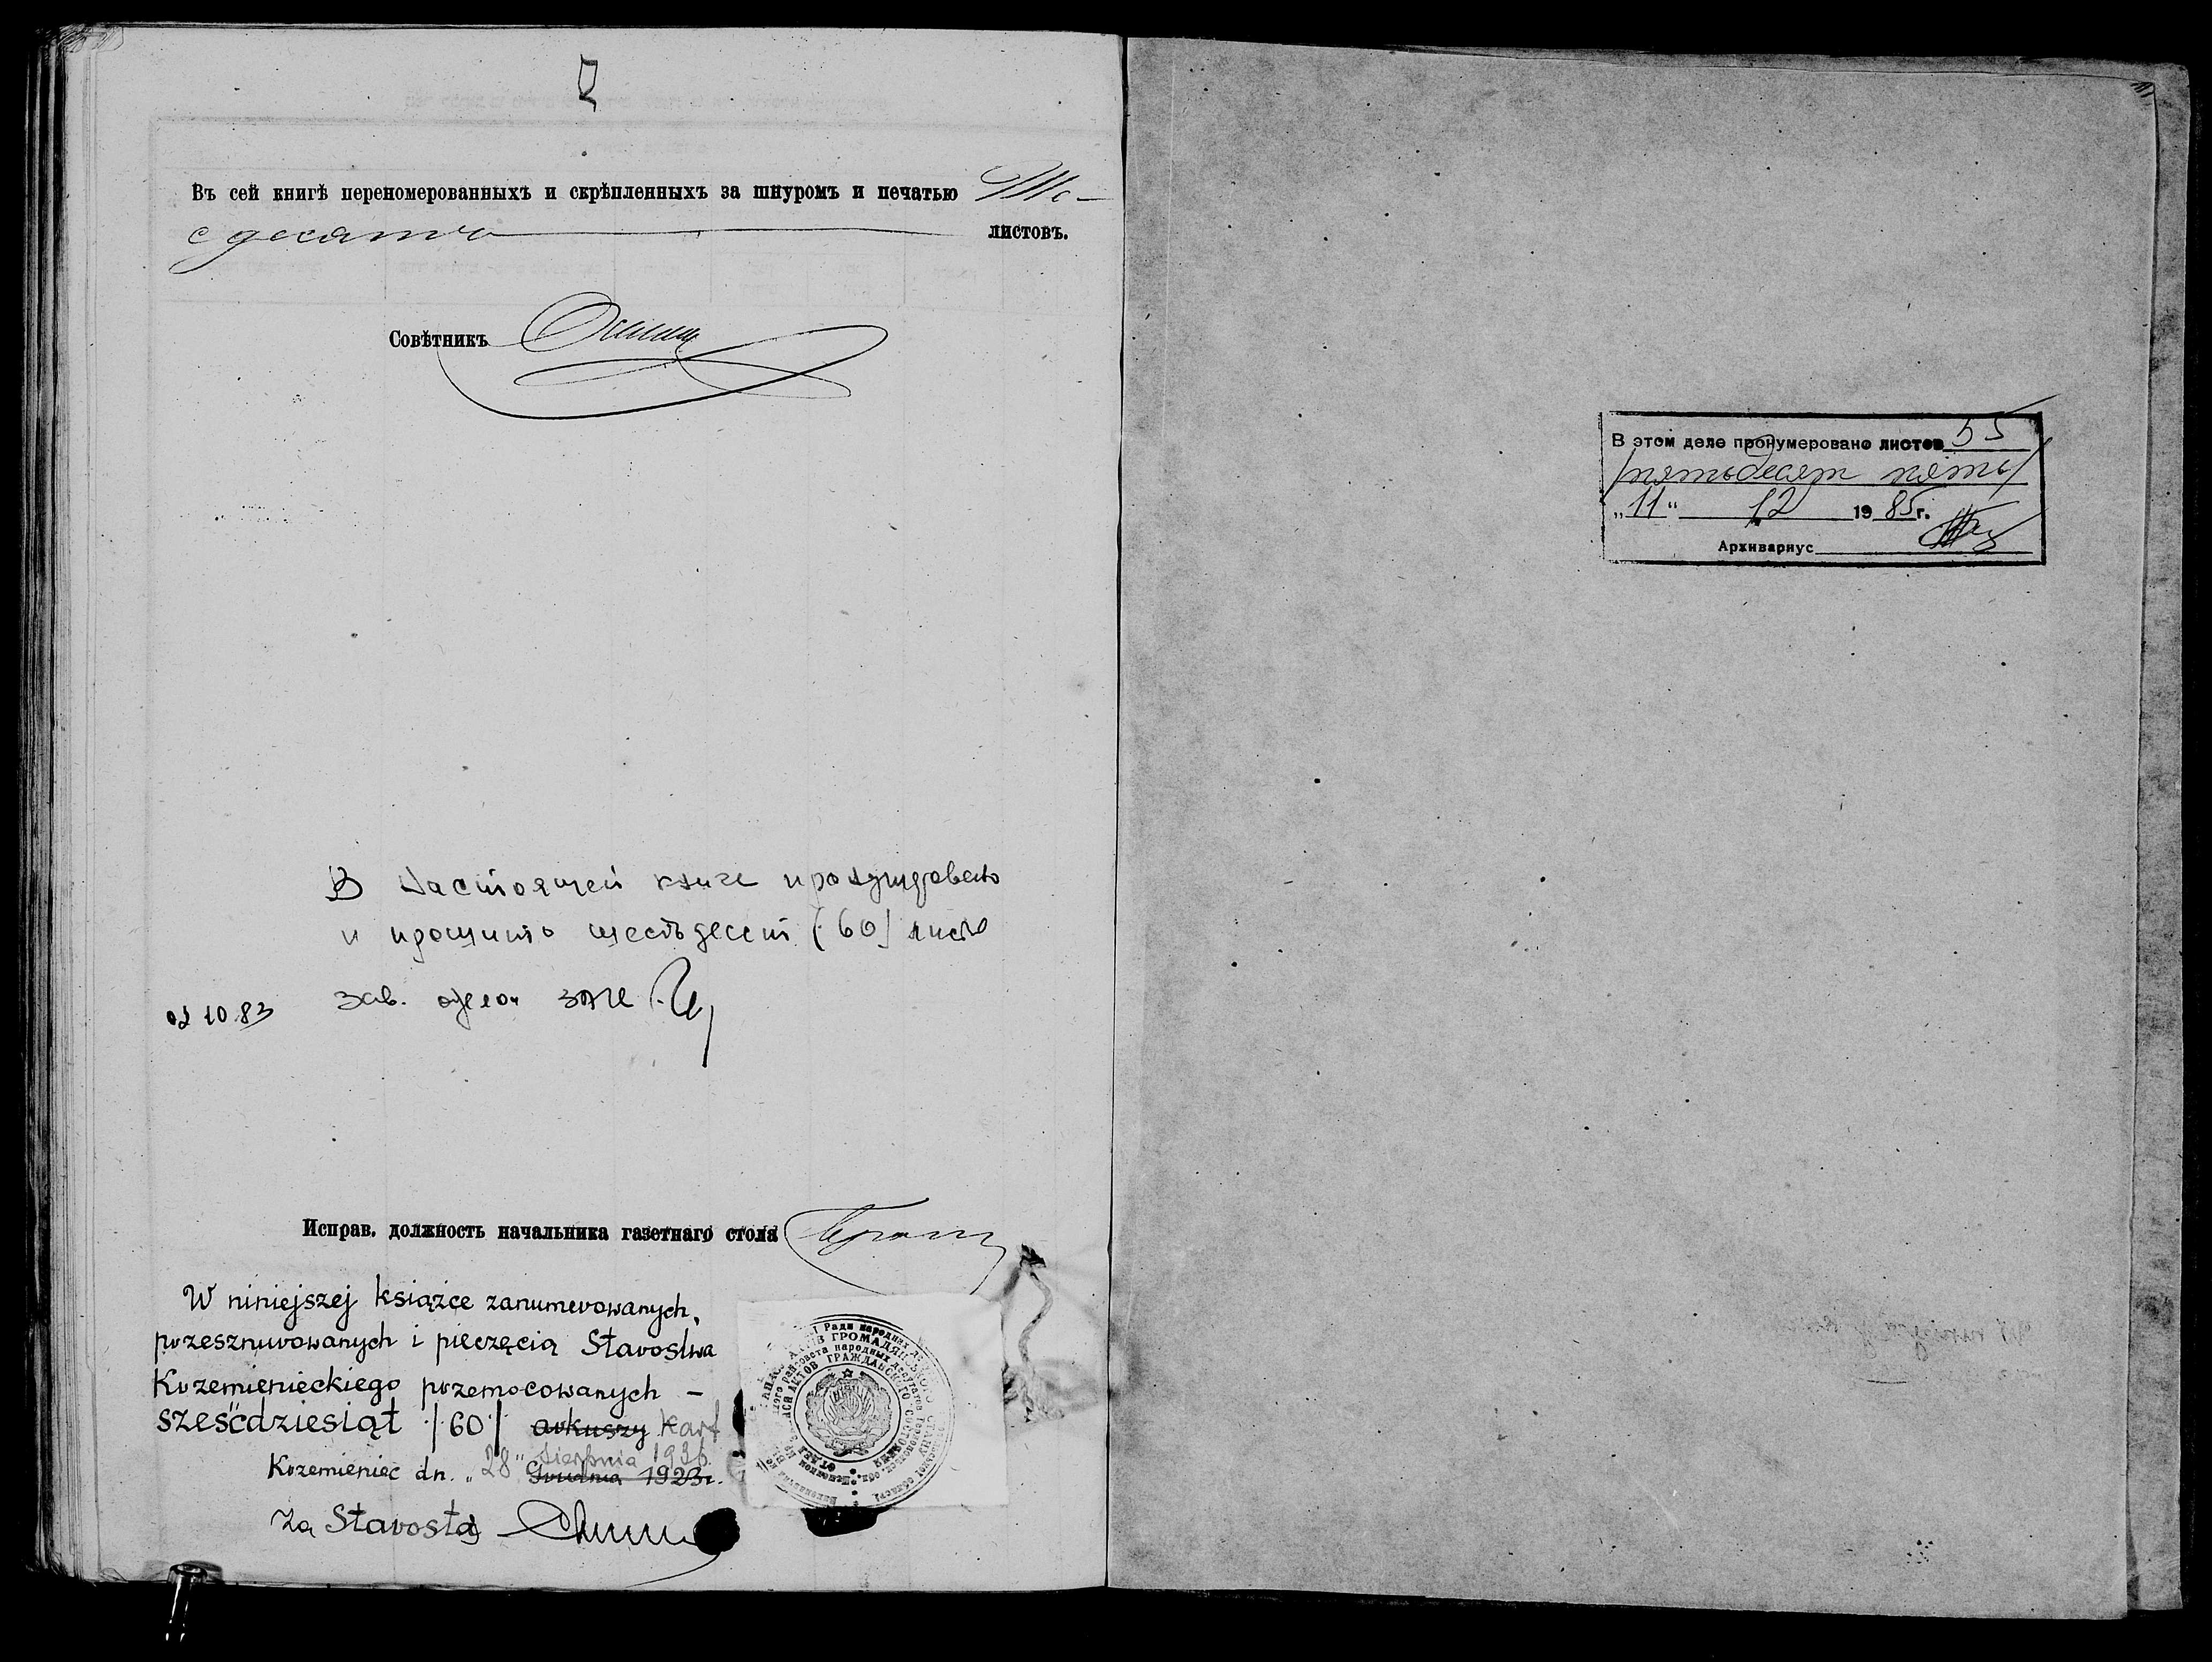 Въ сей книгѣ переномерованныхъ и скрѣпленныхъ за шнуромъ и печатью Ше-
сдесять листовъ.
Совѣтникъ
В настоящей книге пронумеровано
и прошито шестьдесят (60) листо
зав. отделом ЗАГС
02 10 83
Исправ. должность начальника газетнаго стола
W niniejszej książce zanumerowanych,
przesznurowanych i pieczęcią Starostwa
Krzemienieckiego przemocowanych —
sześćdziesiąt /60/ arkuszy kart
Krzemieniec dn. „28" Sierpnia 1936.
Grudnia 1923r.
Za Starostę
В этом деле пронумеровано листов 55
/пятьдесят пять/
„11" 12 1985г.
Архивариус